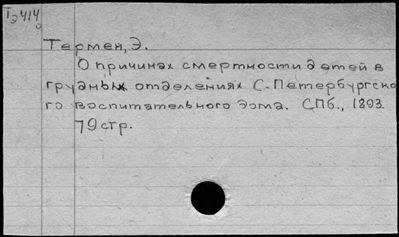 Тэ 414
Термен, Э.
О причинах смертности детей в
грудных отделениях С.-Петербургско
го воспитательного дома. СПб., 1893.
79 стр.